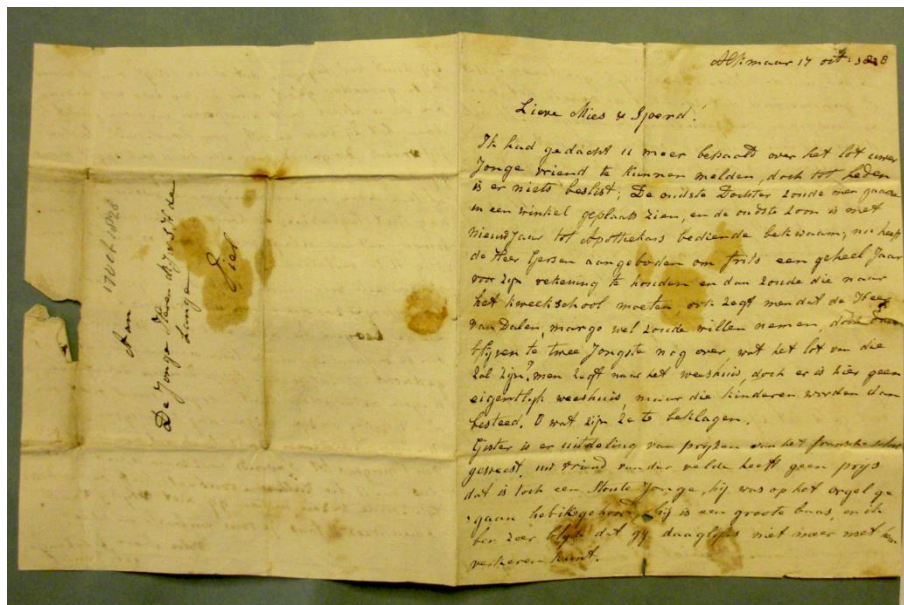 17 Oct 1828
Aan
De Jonge Heeren M, J & S H de
Lange
Tiel
Alkmaar 17 oct: 1828
Lieve Mies & Sjoerd!
Ik had gedacht u meer bepaald over het lot uwer
Jonge vriend te kunnen melden, doch tot heden
is er niets beslist; De oudste Dochter zoude men gaarne
in een winkel geplaatst zien, en de oudste zoon is met
Nieuwjaar tot Apothekers bediende bekwaam, nu heeft
de Heer aangeboden om frits een geheel Jaar
voor zijn rekening te houden en dan zoude die naar
het kweekschool moeten ook zegt men dat de Heer
van Dalen, margo wel zoude willen nemen, doch
blijven te twee Jongste nog over, wat het lot van die
zal zijn? men zegt naar het weeshuis, doch er is hier geen
eigentlyk weeshuis maar die kinderen worden dan
besteed. O wat zijn ze te beklagen.
Gister is er uitdeling van pryzen van het fransche school
geweest, uw vriend van der velde heeft geen prys
dat is toch een Stoute Jonge, hij was op het orgel ge
gaan heb ik gehoord, hij is een groote baas, en ik
ben zeer blyde dat gy daaglyks niet meer met hem
verkeren kunt.